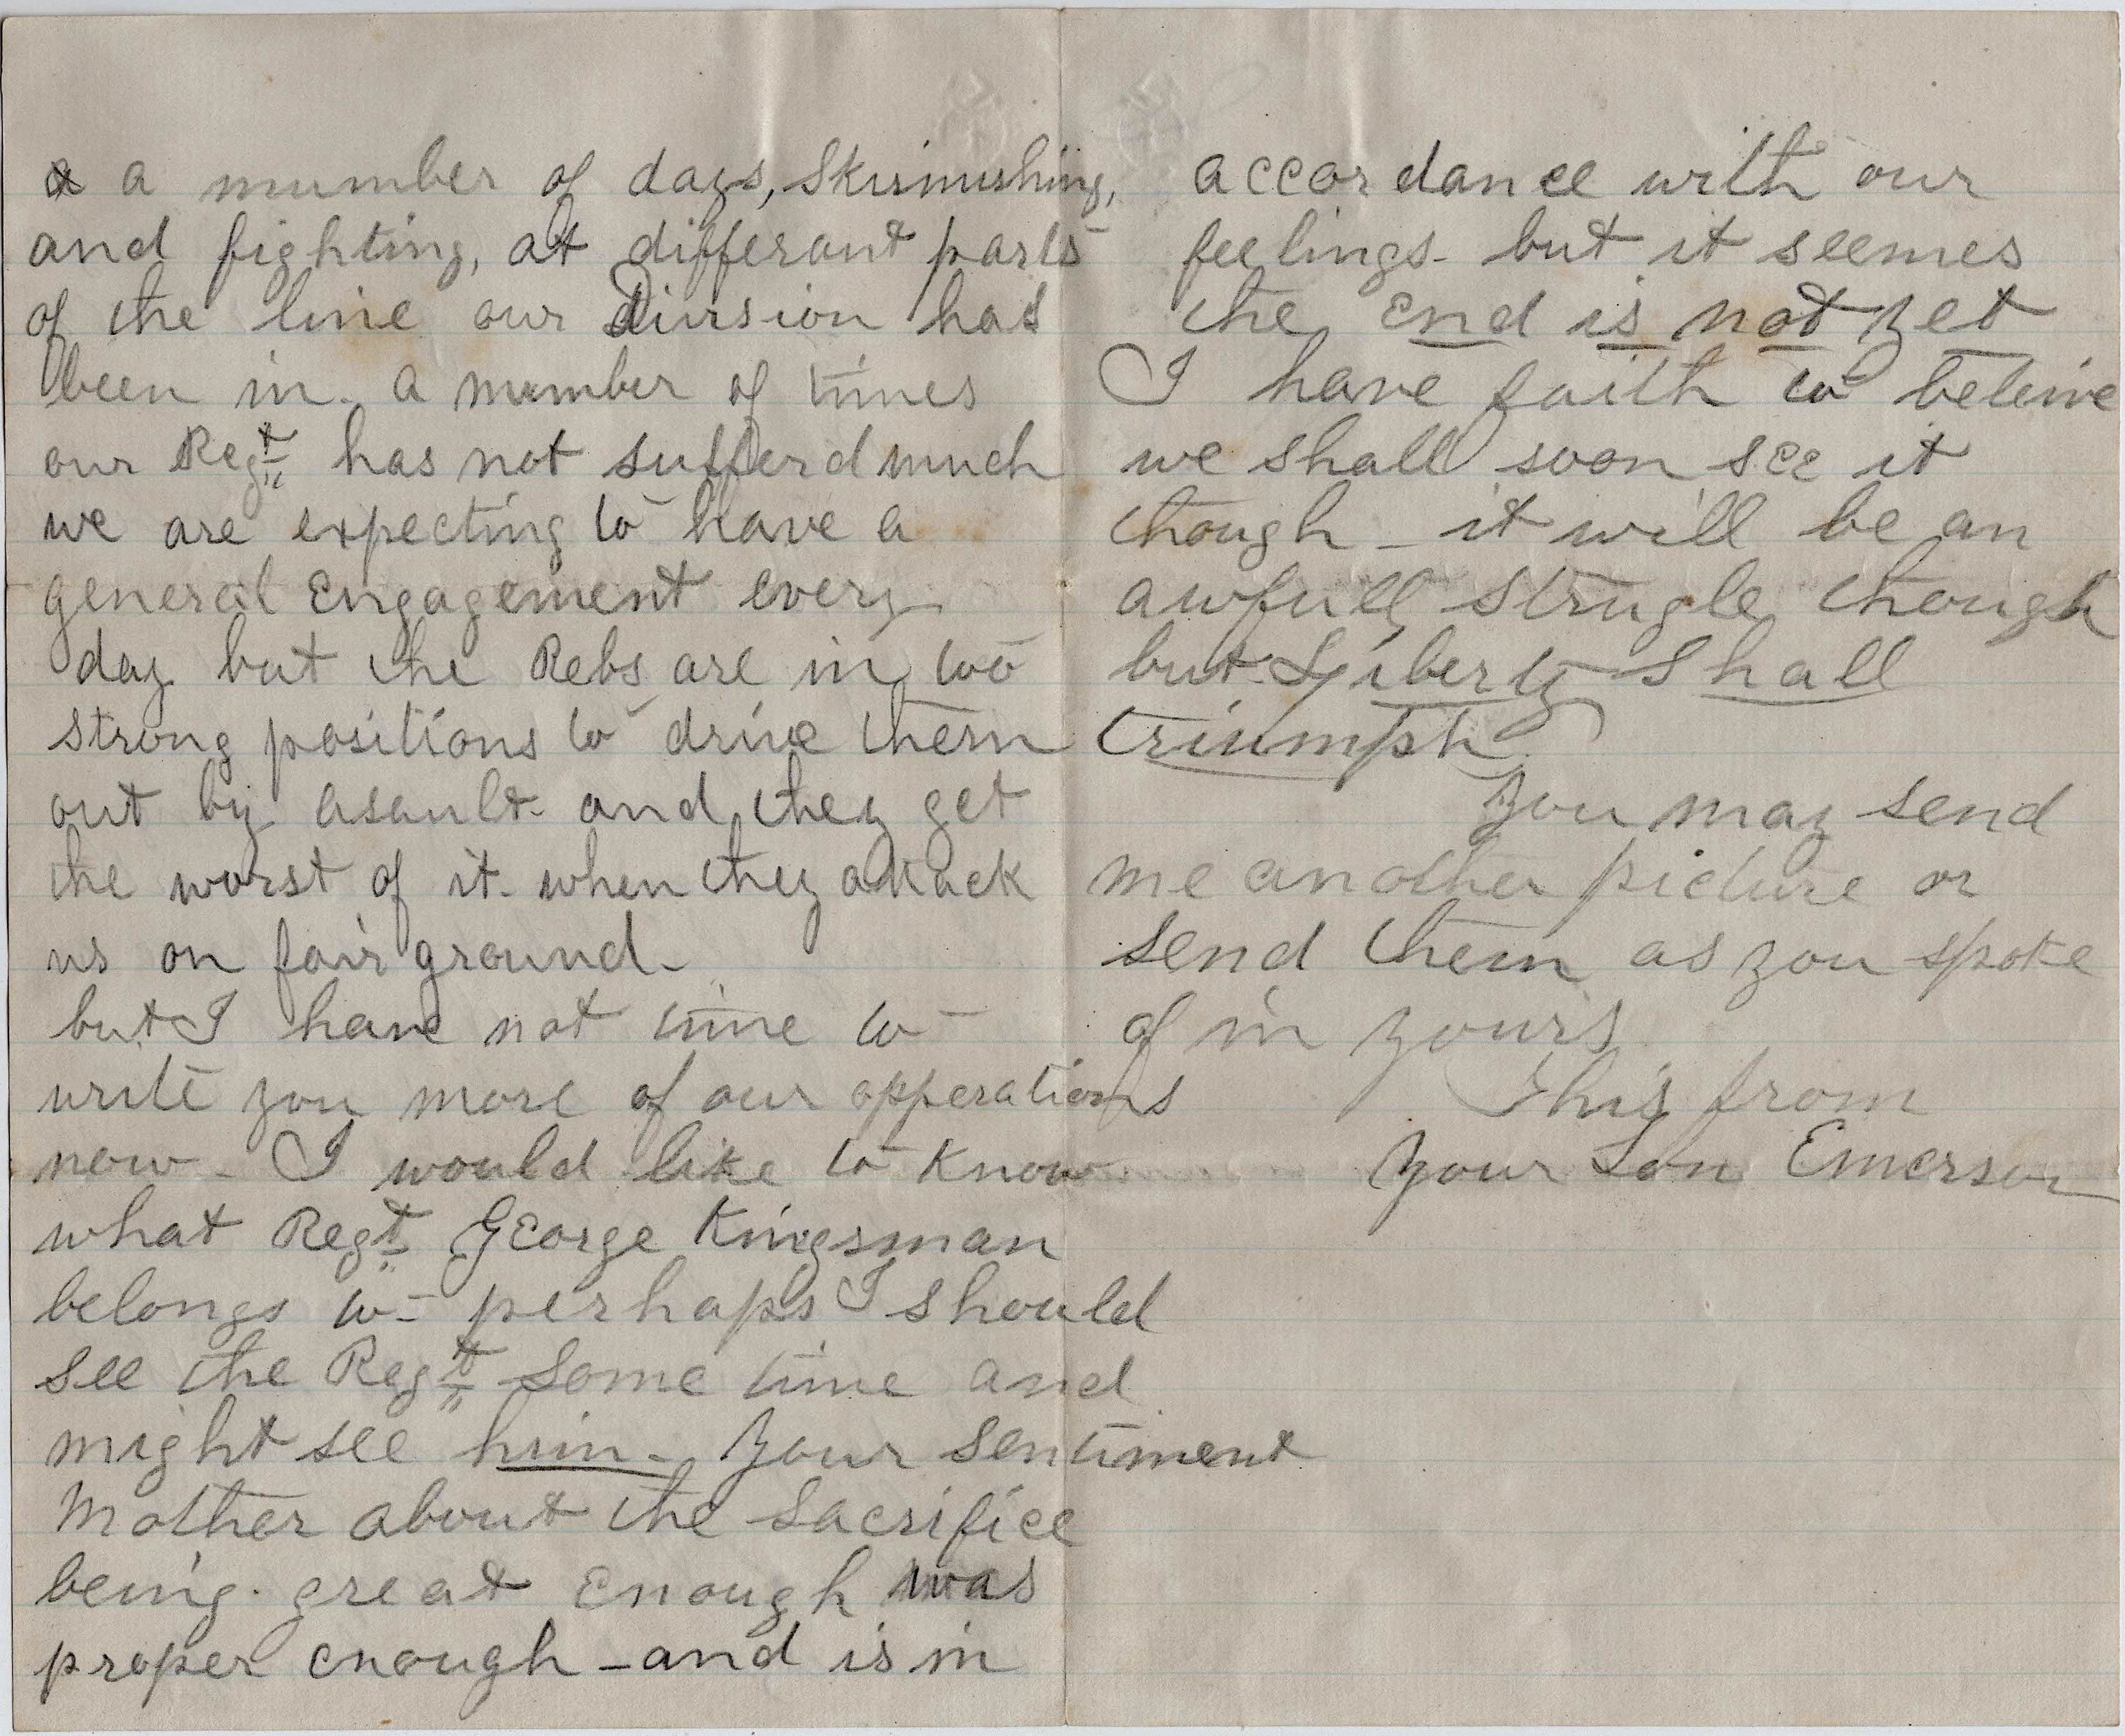 & a number of days, Skirmishing,
and fighting, at differant parts
of the line our division has
been in. a number of times
our Regt has not sufferd much
we are expecting to have a
general Engagement every
day but the Rebs are in too
strong positions to drive them
out by asault. and they get
the worst of it. when they attack
us on fair ground.
but I have not time to
write you more of our opperations
now. I would like to know
what Regt George Kingsman
belongs to - perhaps I should
see the Regt some time and
might see him. Your sentiment
Mother about the sacrifice
being. great enough was
proper enough - and is in
accordance with our
feelings - but it seemes
the end is not yet
I have faith to beleive
we shall soon see it
though - it will be an
awfull strugle though
but Liberty shall
triumph
You may send
me another picture or
send them as you spoke
of in yours
This from
Your Son Emerson